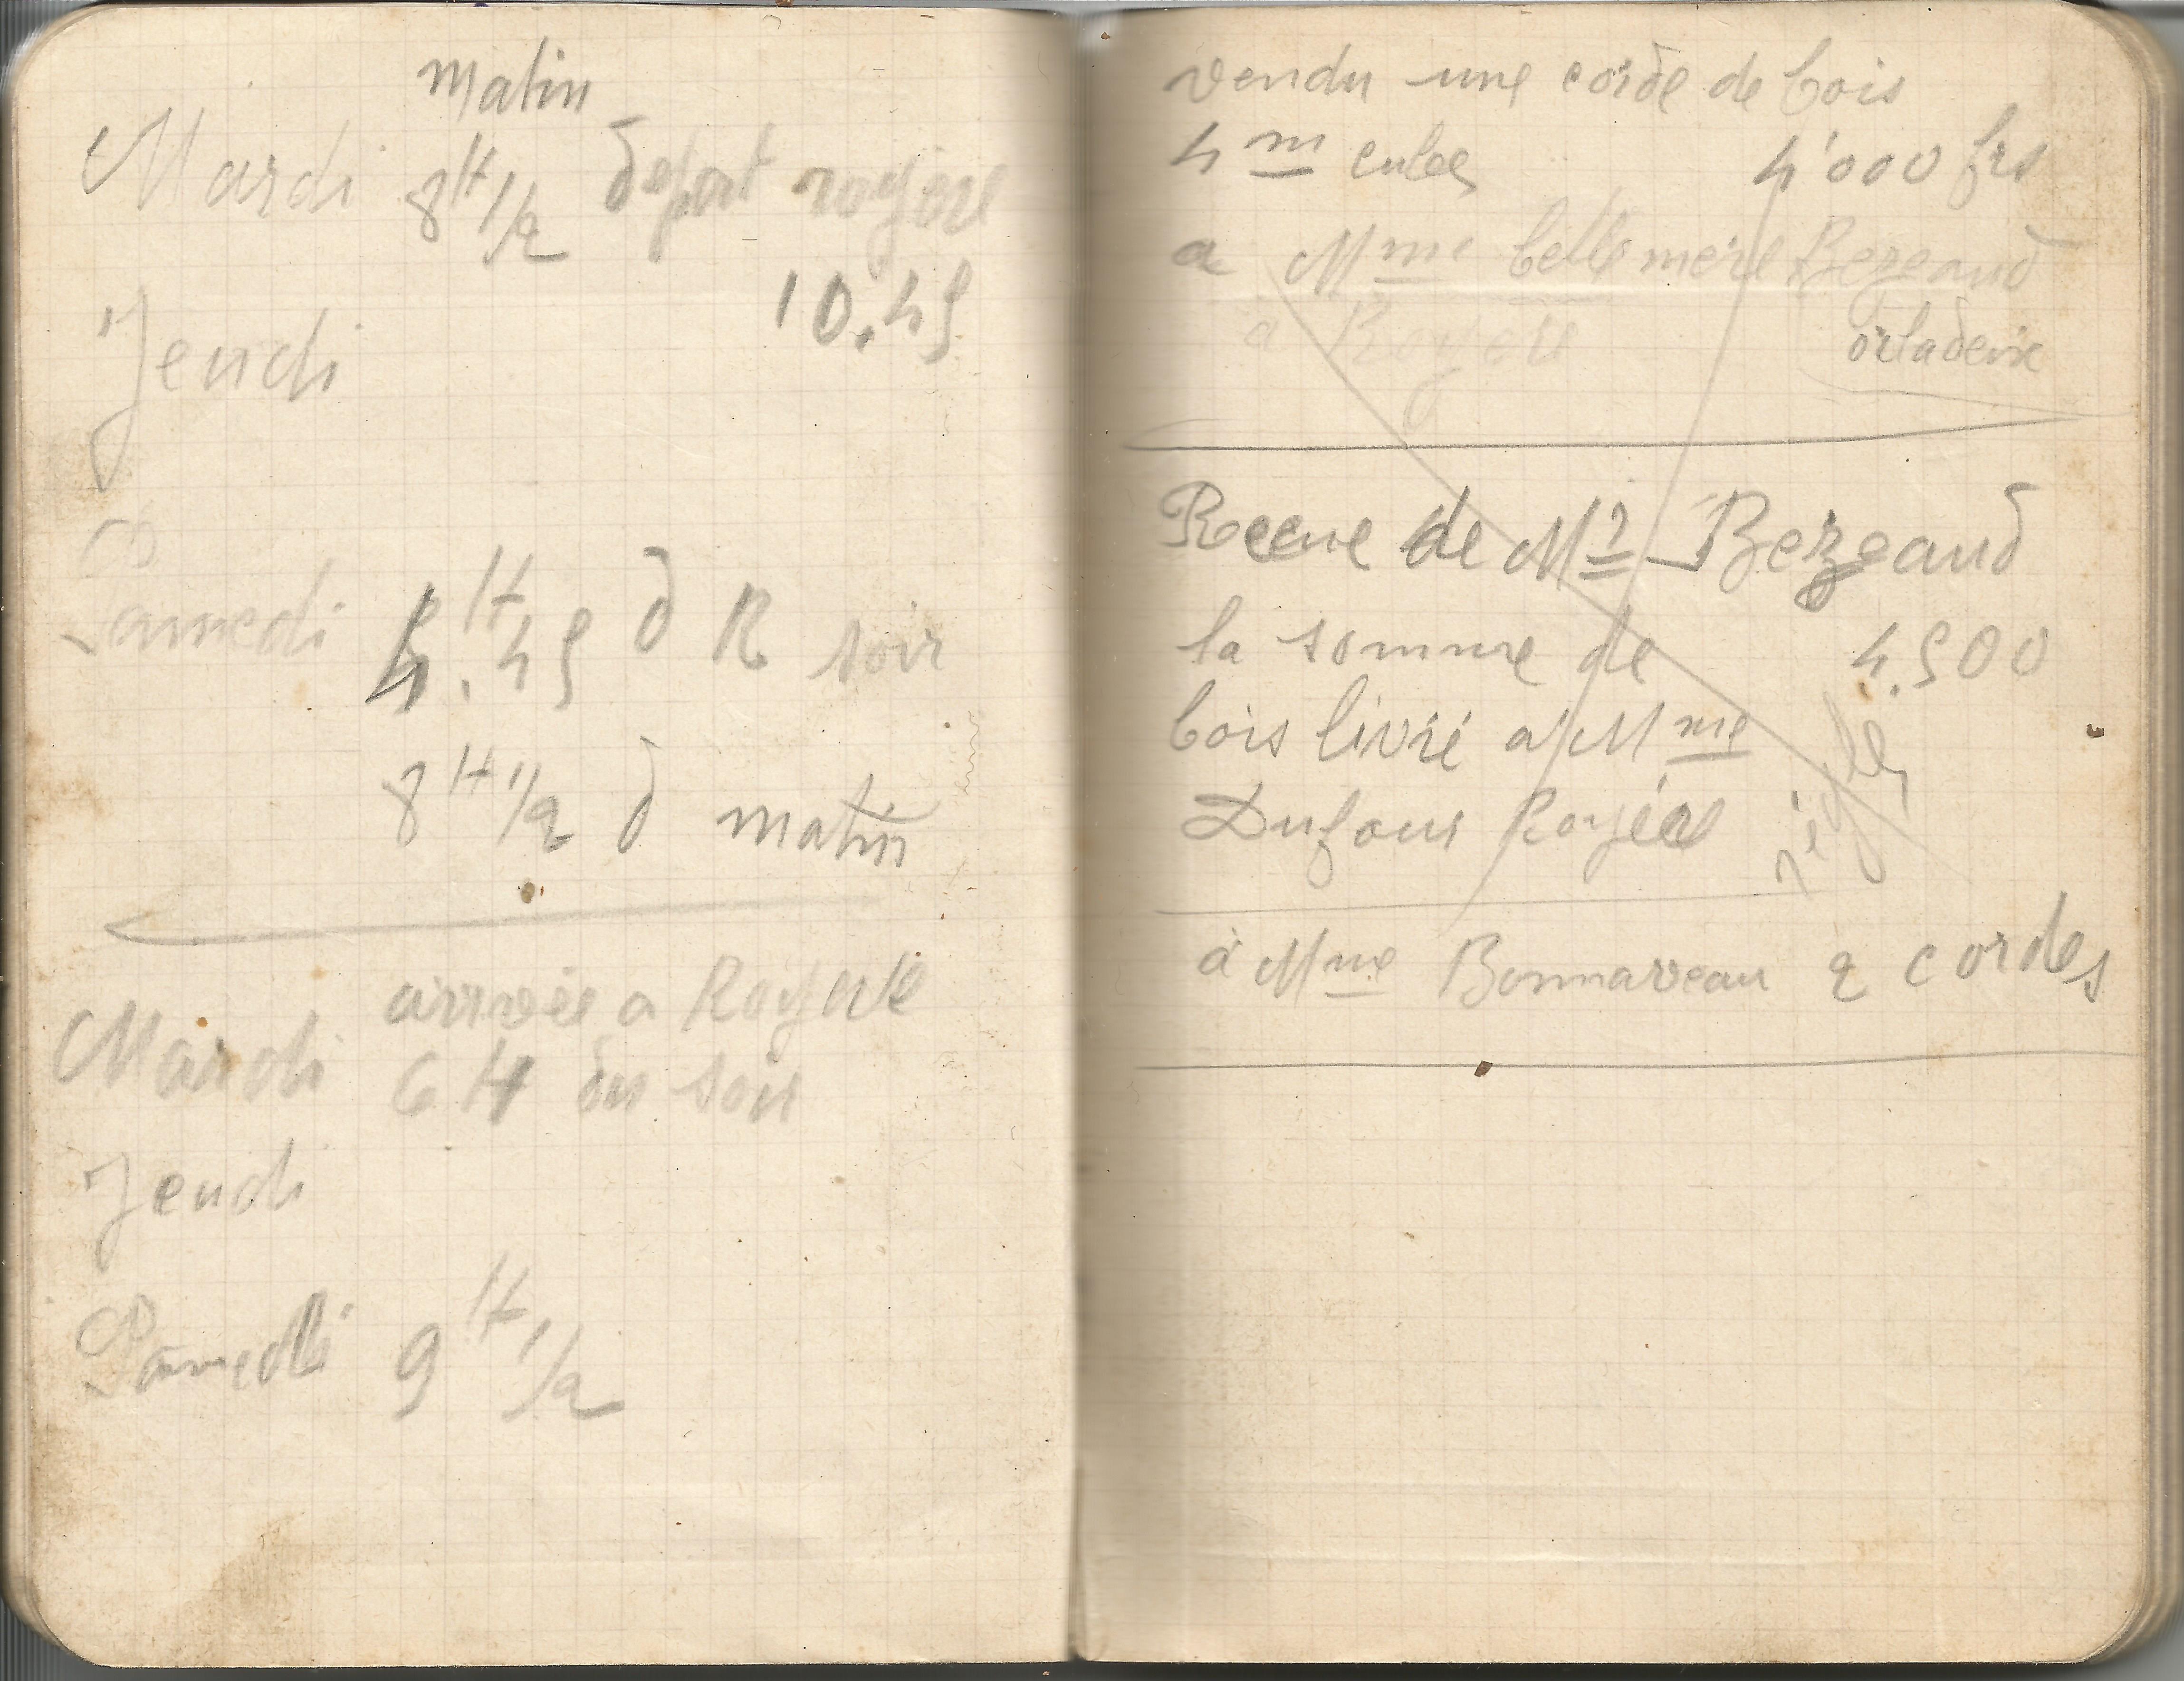 matin
Mardi 8H 1/2 depart royere
10.45
Jeudi
Samedi 4H.45 d R soir
8H 1/2 d matin
arrivée a Royere
Mardi 6 H du soir
Jeudi
Samedi 9H 1/2
vendu une corde de bois
4 m cubes 4'000 frs
a Mme belle mère Bezeaud
a Royere
Recue de Mr Bezeaud
la somme de 4.500
bois livré a Mme
Dufour Royère réglé
à Mme Bonnaveau 2 cordes